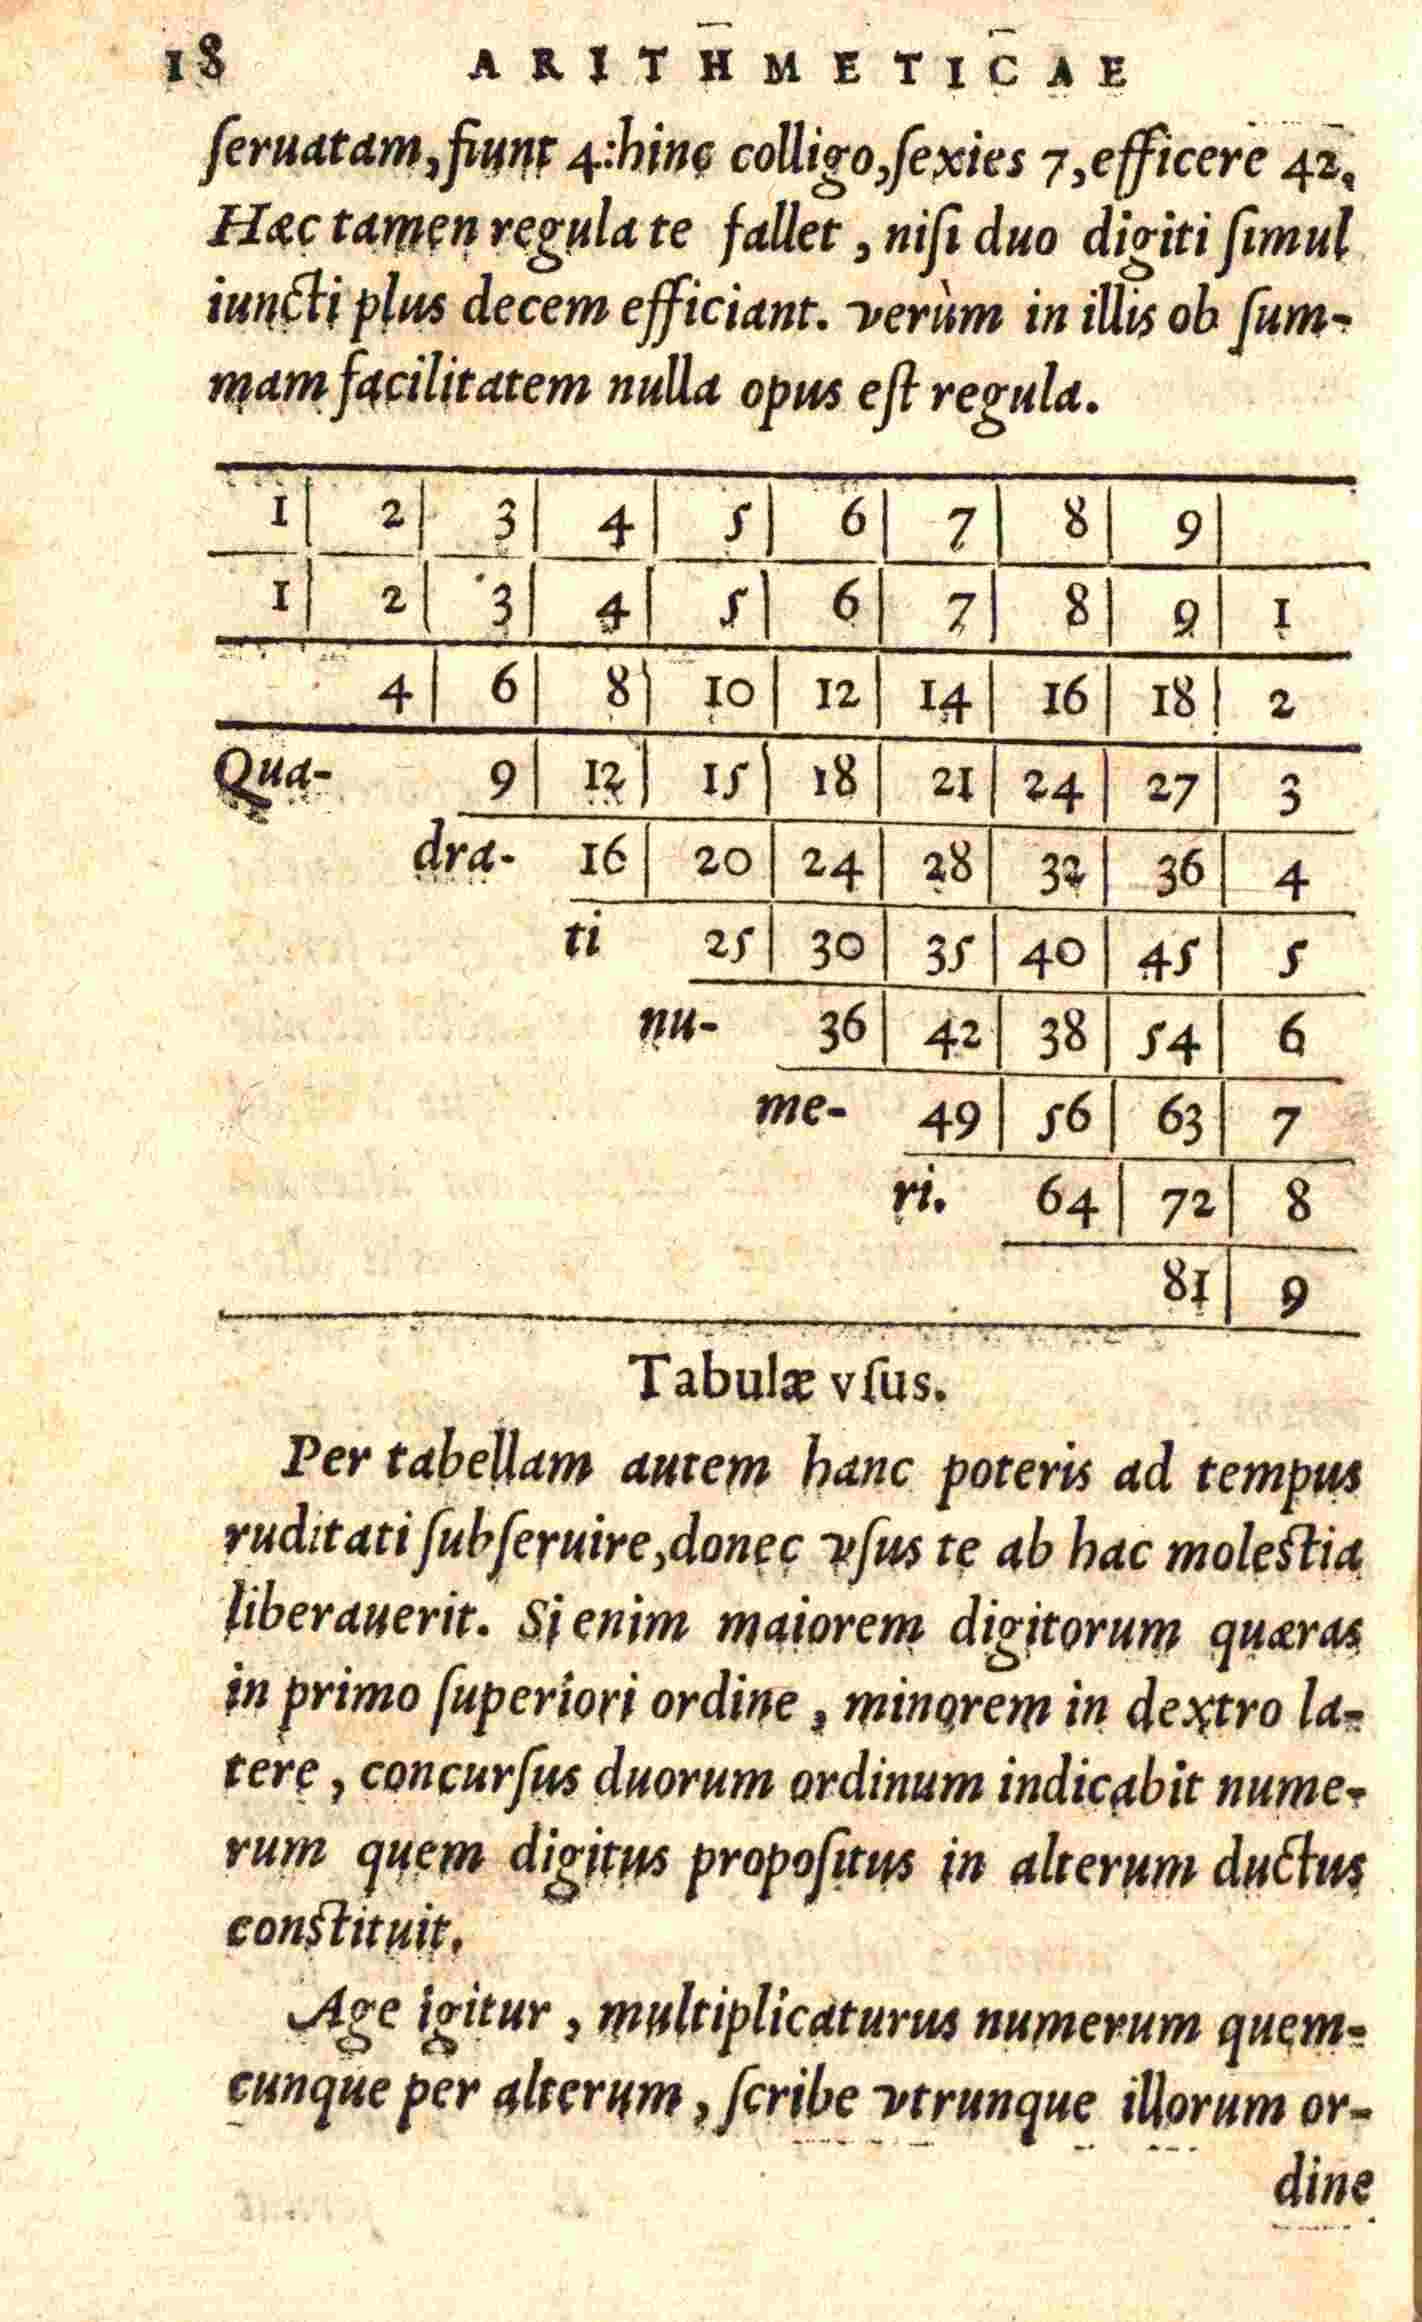 18 ARITHMETICAE
ſeruatam, fiunt 4: hinc colligo, ſexies 7, efficere 42.
Hæc tamen regula te fallet, niſi duo digiti ſimul
iuncti plus decem efficiant. verùm in illis ob ſum-
mam facilitatem nulla opus eſt regula.
1 2 3 4 5 6 7 8 9
1 2 3 4 5 6 7 8 9 1
4 6 8 10 12 14 16 18 2
Qua- 9 12 15 18 21 24 27 3
dra- 16 20 24 28 32 36 4
ti 25 30 35 40 45 5
nu- 36 42 38 54 6
me- 49 56 63 7
ri. 64 72 8
81 9
Tabulæ vſus.
Per tabellam autem hanc poteris ad tempus
ruditati ſubſeruire, donec vſus te ab hac moleſtia
liberauerit. Si enim maiorem digitorum quæras
in primo ſuperiori ordine, minorem in dextro la-
tere, concurſus duorum ordinum indicabit nume-
rum quem digitus propoſitus in alterum ductus
conſtituit.
Age igitur, multiplicaturus numerum quem-
cunque per alterum, ſcribe vtrunque illorum or-
dine